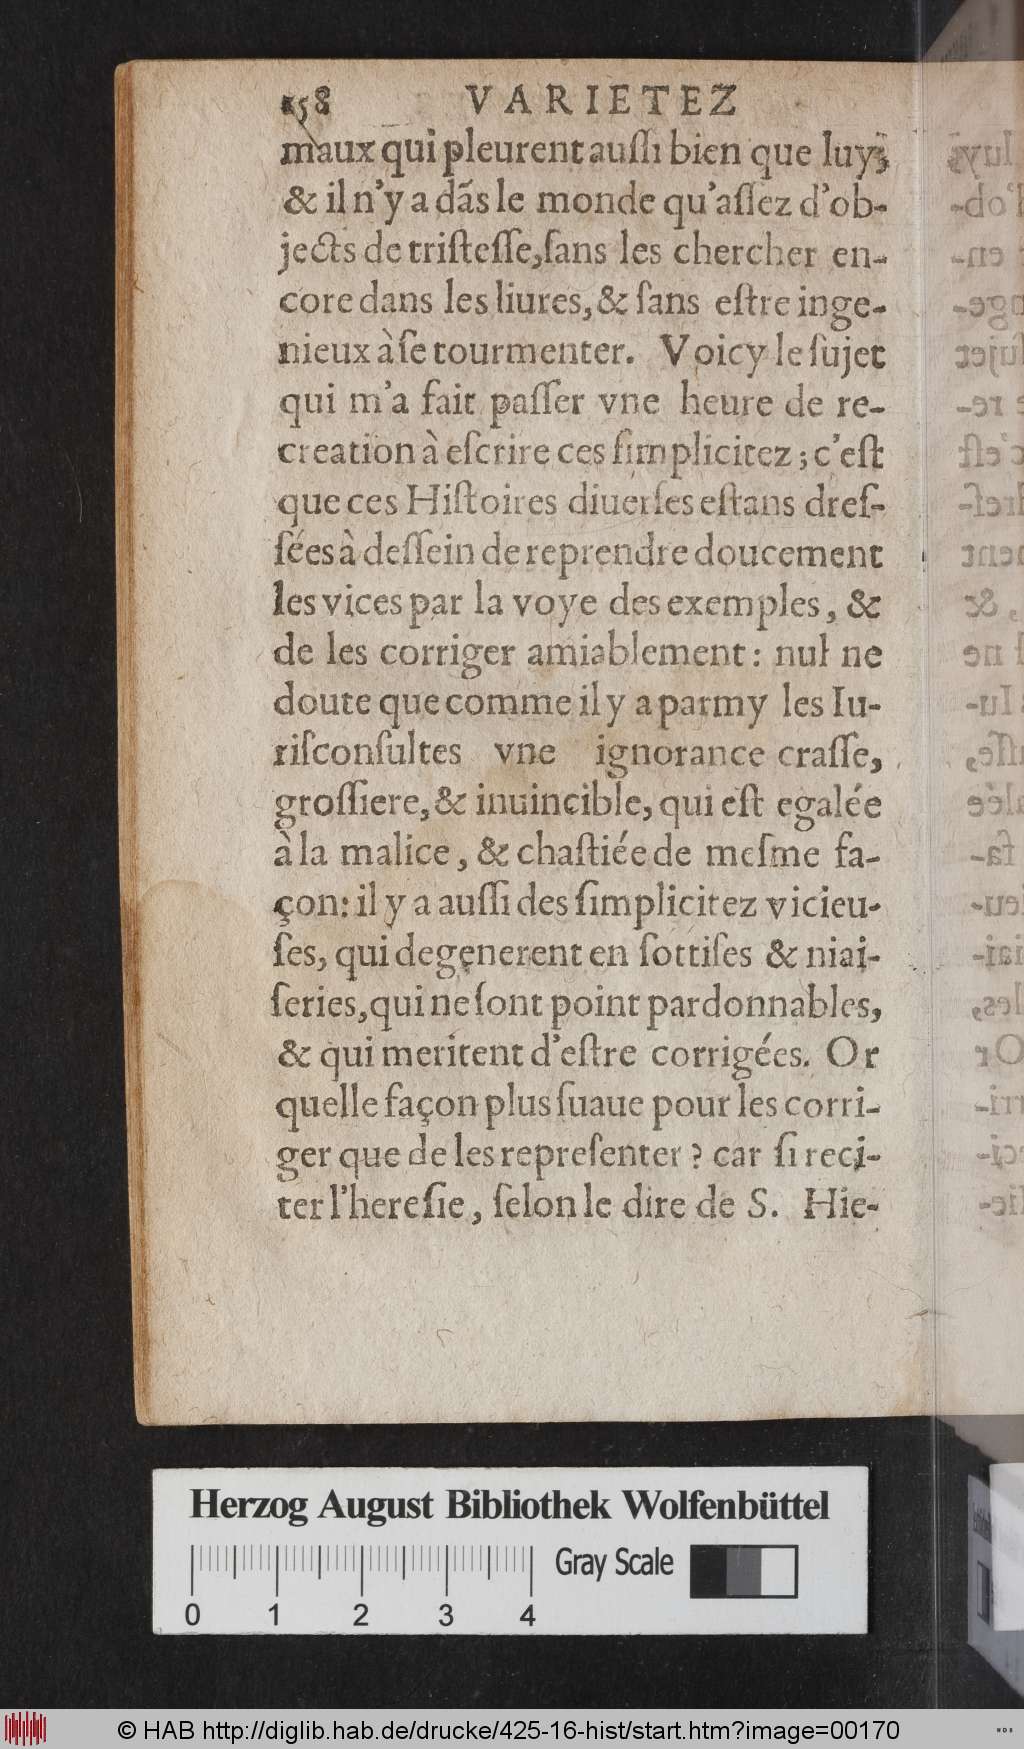 158 VARIETEZ
maux qui pleurent auſſi bien que luy;
& il n'y a dãs le monde qu'aſſez d'ob-
jects de triſteſſe, ſans les chercher en-
core dans les liures, & ſans eſtre inge-
nieux à ſe tourmenter. Voicy le ſujet
qui m'a fait paſſer vne heure de re-
creation à eſcrire ces ſimplicitez; c'eſt
que ces Hiſtoires diuerſes eſtans dreſ-
ſées à deſſein de reprendre doucement
les vices par la voye des exemples, &
de les corriger amiablement: nul ne
doute que comme il y a parmy les Iu-
riſconſultes vne ignorance craſſe,
groſſiere, & inuincible, qui eſt egalée
à la malice, & chaſtiée de meſme fa-
çon: il y a auſſi des ſimplicitez vicieu-
ſes, qui degenerent en ſottiſes & niai-
ſeries, qui ne ſont point pardonnables,
& qui meritent d'eſtre corrigées. Or
quelle façon plus ſuaue pour les corri-
ger que de les repreſenter? car ſi reci-
ter l'hereſie, ſelon le dire de S. Hie-
Herzog August Bibliothek Wolfenbüttel
Gray Scale
0 1 2 3 4
© HAB http://diglib.hab.de/drucke/425-16-hist/start.htm?image=00170